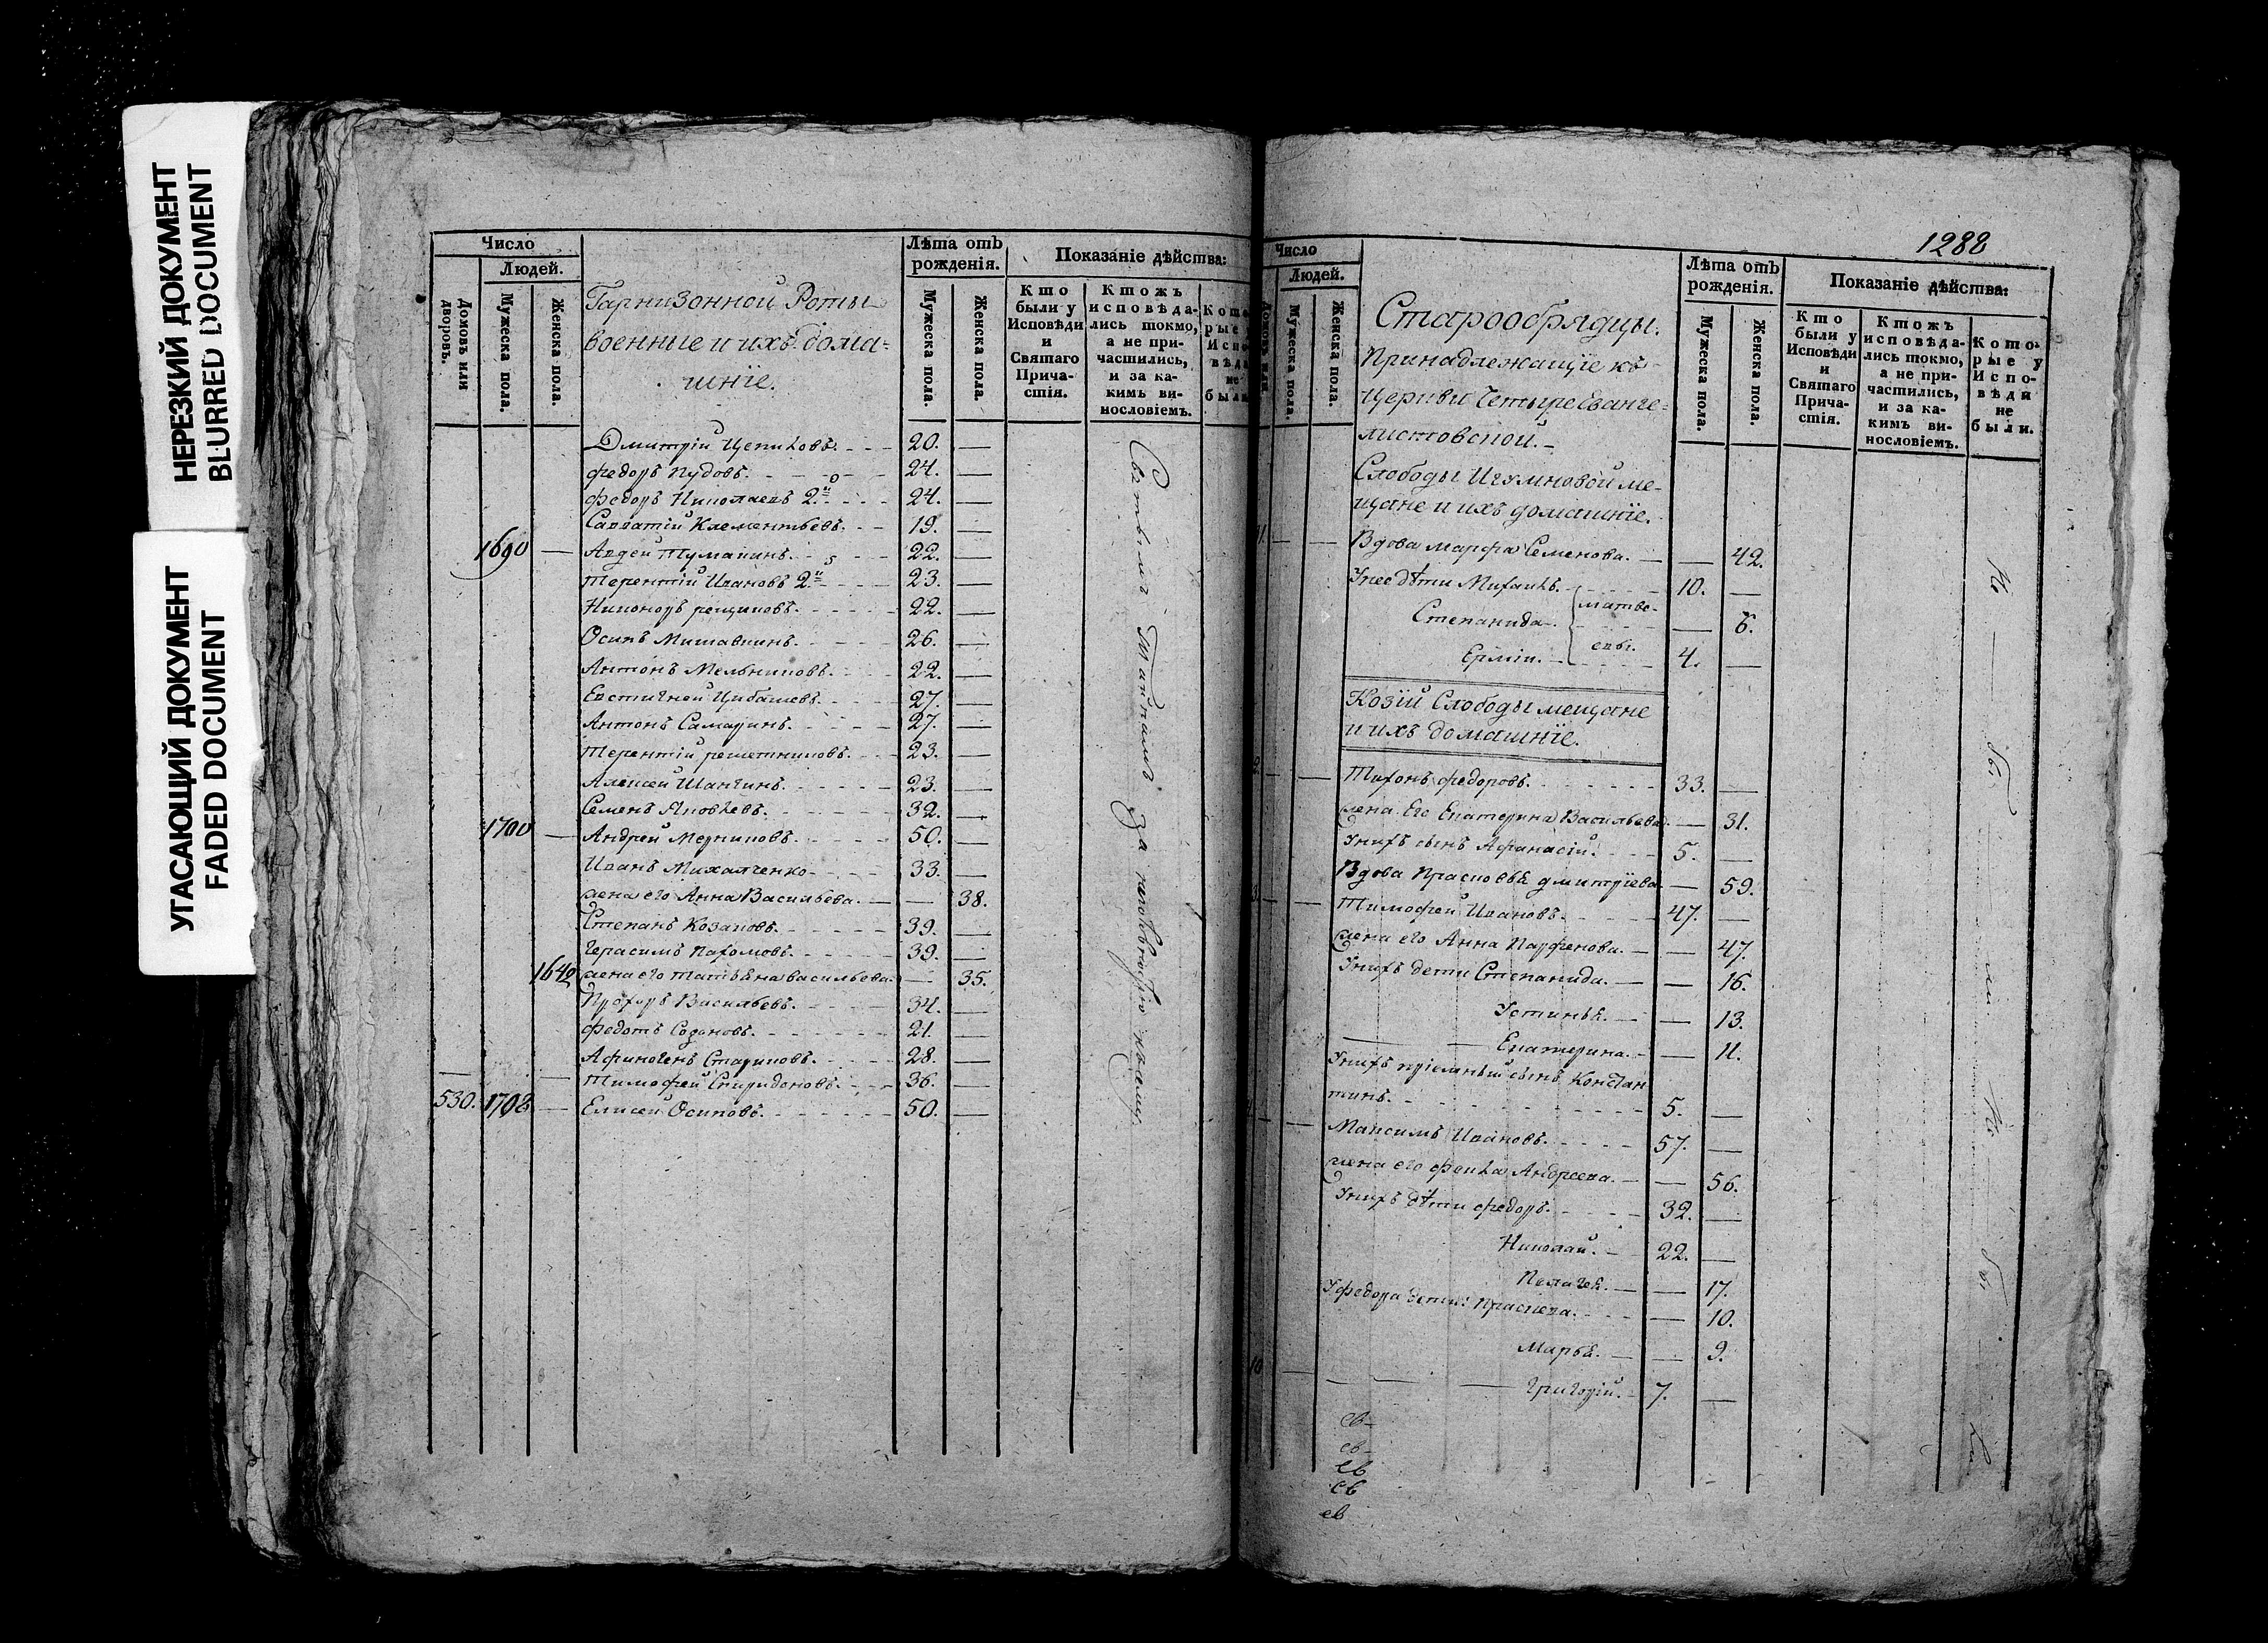 НЕРЕЗКИЙ ДОКУМЕНТ
BLURRED DOCUMENT
УГАСАЮЩИЙ ДОКУМЕНТ
FADED DOCUMENT
Число
Людей.
Домовъ или дворовъ.
Мужеска пола.
Женска пола.
Гарнизонной Роты
военные и ихъ дома=
шніе.
Лѣта отъ рожденія.
Мужеска пола.
Женска пола.
Показаніе дѣйства:
Кто были у Исповѣди и Святаго Причастія.
Ктожъ исповѣдались токмо, а не причастились, и за какимъ винословіемъ.
Дмитрій Цепиховъ. 20. —
Федоръ Пудовъ. 24. —
Федоръ Николаевъ 2й 24. —
Савватій Клементьевъ. 19. —
1690 — Авдей 22. —
Терентій Ивановъ 2й 23. —
Никоноръ 22. —
Осипъ 26. —
Антонъ Мельниковъ. 22. —
Евстигней 27. —
Антонъ Самаринъ. 27. —
Терентій Решетниковъ. 23. —
Алексей 23. —
Семенъ Яковлевъ. 32. —
1700 — Андрей Мерниковъ. 50. —
Иванъ Михалченко 33. —
жена его Анна Васильева. — 38.
Степанъ Козаковъ. 39. —
Герасимъ Пахомовъ. 39. —
1642 жена его Татьяна Васильева. — 35.
Прохоръ Васильевъ. 34. —
Федотъ 21. —
Афиногенъ Стариковъ. 28. —
Тимофей Спиридоновъ. 36. —
530. 1708 — Елисей Осиповъ. 50. —
1288
Число
Людей.
Мужеска пола.
Женска пола.
Старообрядцы.
Принадлежащіе къ
Церкви Четыреєванге=
листовской.
Слободы Игумновой ме-
щане и ихъ домашніе.
Лѣта отъ рожденія.
Мужеска пола.
Женска пола.
Показаніе дѣйства:
Кто были у Исповѣди и Святаго Причастія.
Ктожъ исповѣдались токмо, а не причастились, и за какимъ винословіемъ.
Которые у Исповѣди не были.
Вдова Марфа Семенова. — 42.
У нее дѣти Михаилъ. 10. —
матве-
Степанида. — 6.
евы.
Ермій. 4. —
Козій Слободы мещане
и ихъ домашніе.
Тихонъ Федоровъ. 33. —
жена Его Екатерина Васильева — 31.
У нихъ сынъ Афанасій. 5. —
Вдова Прасковья Дмитріева — 59.
Тимофей Ивановъ. 47. —
жена его Анна Парфенова. — 47.
У нихъ дети Степанида. — 16.
Устинья. — 13.
Екатерина. — 11.
У нихъ пріемный сынъ Констан
тинъ. 5. —
Максимъ Ивановъ. 57. —
жена его Фекла Андреева. — 56.
У нихъ дѣти Федоръ. 32. —
Николай. 22. —
Пелагея. — 17.
У Федора дети: Прасковa. — 10.
Марья. — 9.
Григорій. 7. —
св
св
св
св
св